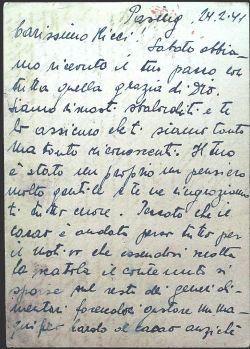 Pasing, 24.2.41
Carissimo Ricci!
Sabato abbia-
mo ricevuto il tuo pacco con
tutta quella grazia di Dio.
Siamo rimasti sbalorditi e te
lo assicuro che ti siamo tanto
ma tanto riconoscenti. Il tuo
è stato un proprio un pensiero
molto gentile e te ne ringraziamo
di tutto cuore. Peccato che il
cacao è andato perso tutto per
il motivo che essendosi rotta
la scatola il contenuto si
sparse sul resto dei generi ali-
mentari facendoci gustare
per cacao anziché